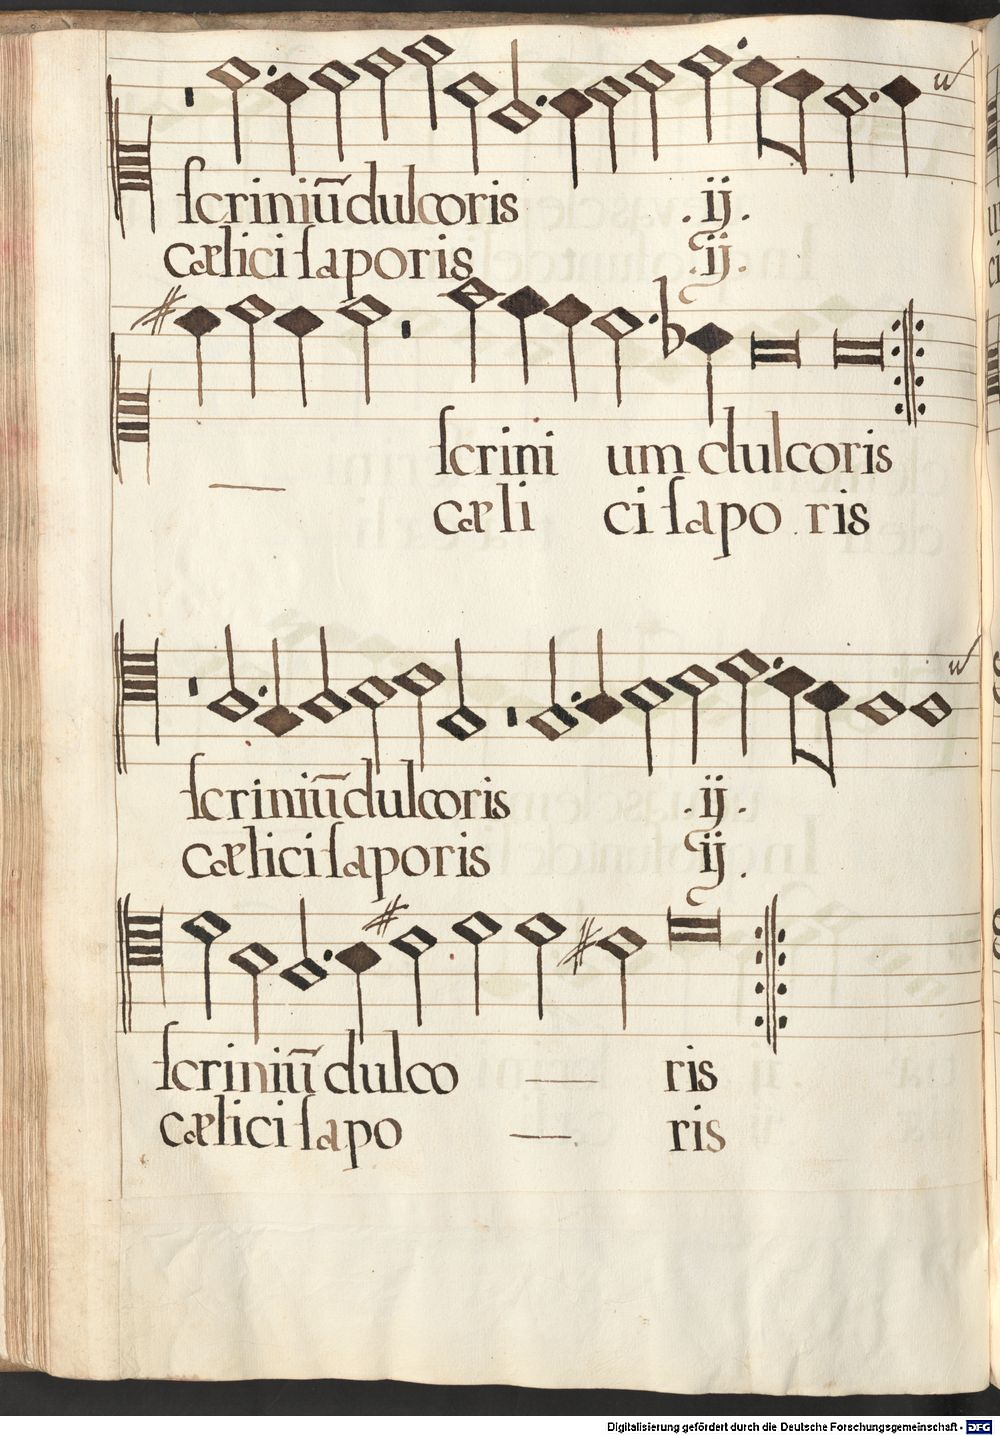 scriniū dulcoris .ij.
cælici saporis .ij.
scrini um dulcoris
cæli ci sapo ris
scriniū dulcoris .ij.
cælici saporis ij.
scriniū dulco ris
cælici sapo ris
Digitalisierung gefördert durch die Deutsche Forschungsgemeinschaft - DFG